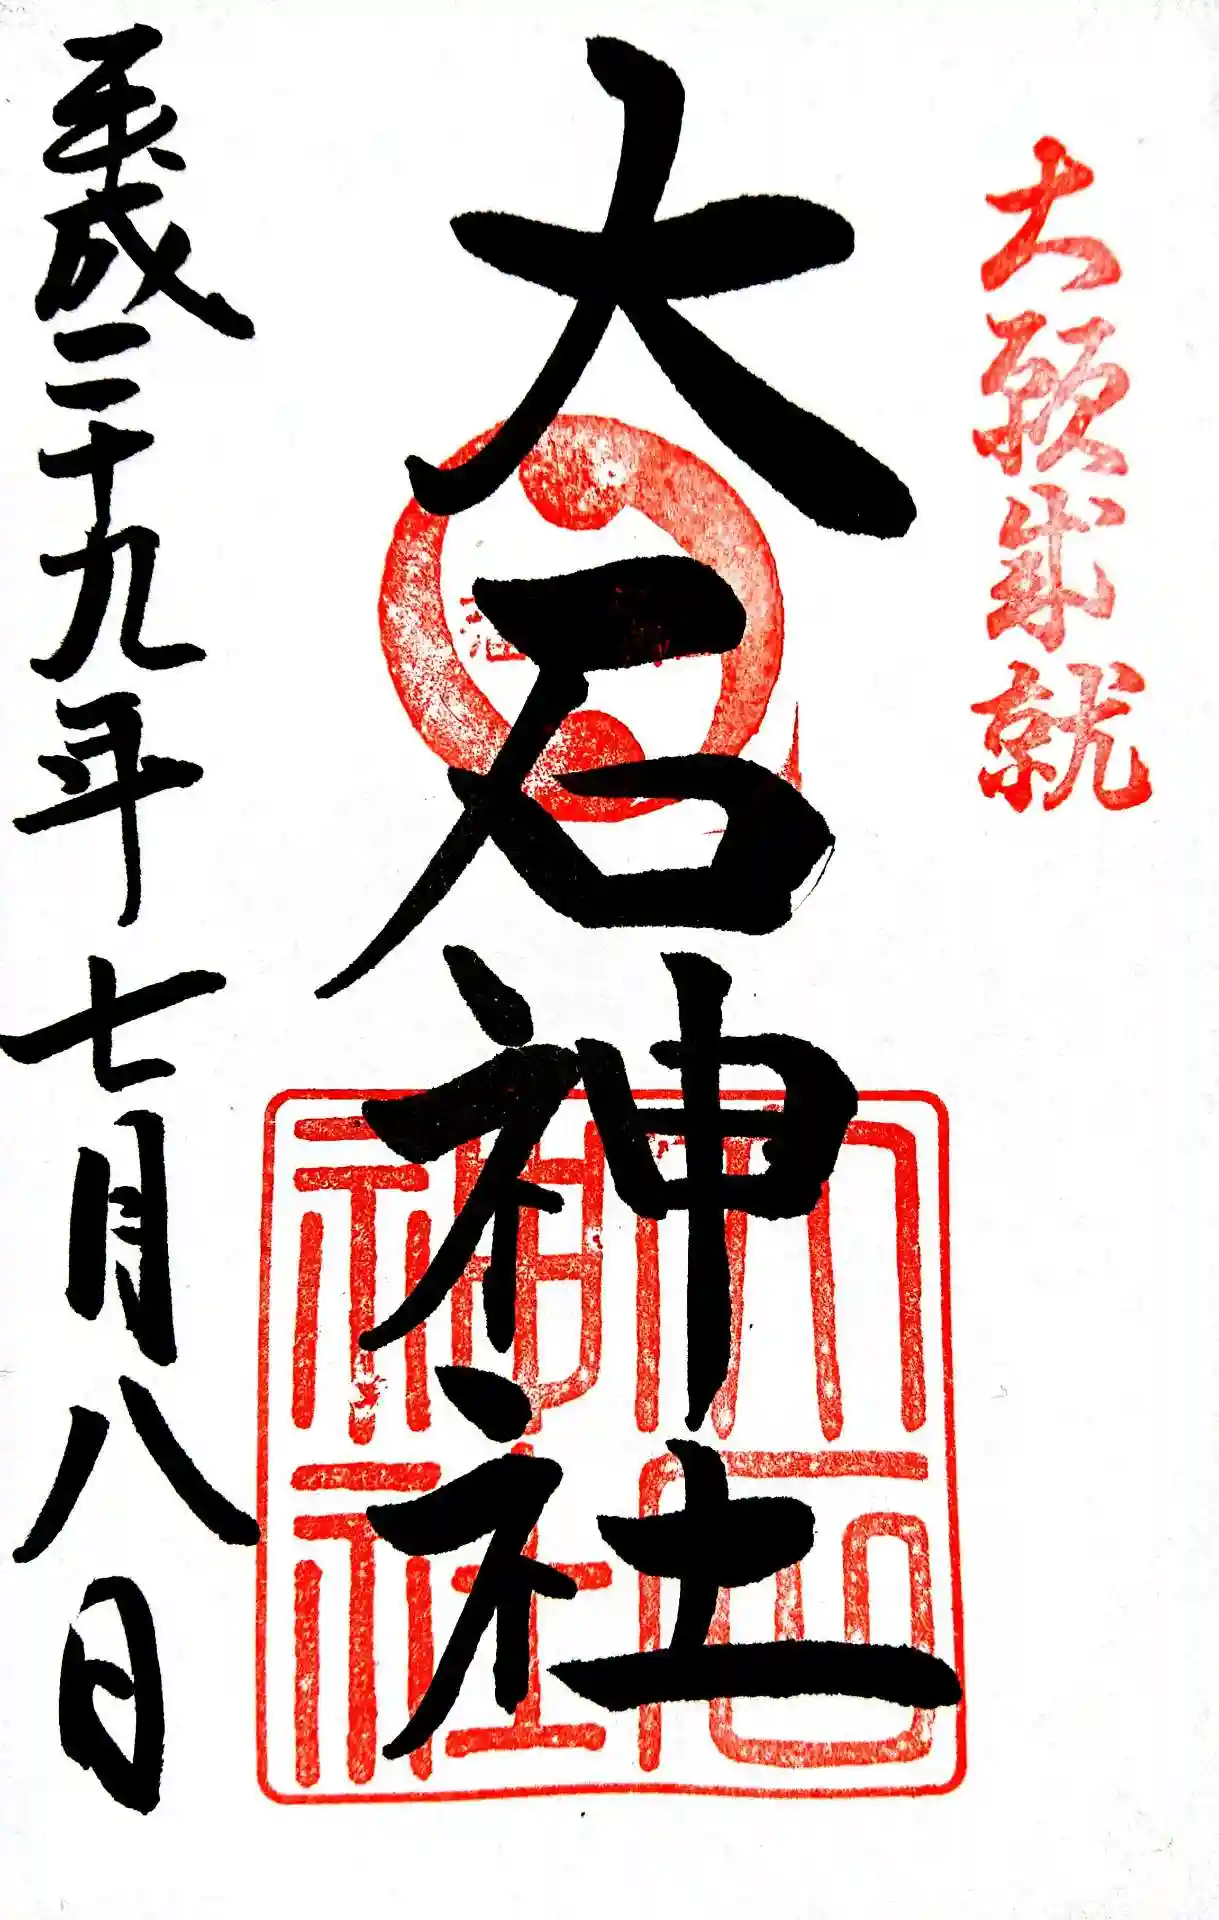 大願成就
大石神社
大石神社
平成二十九年七月八日